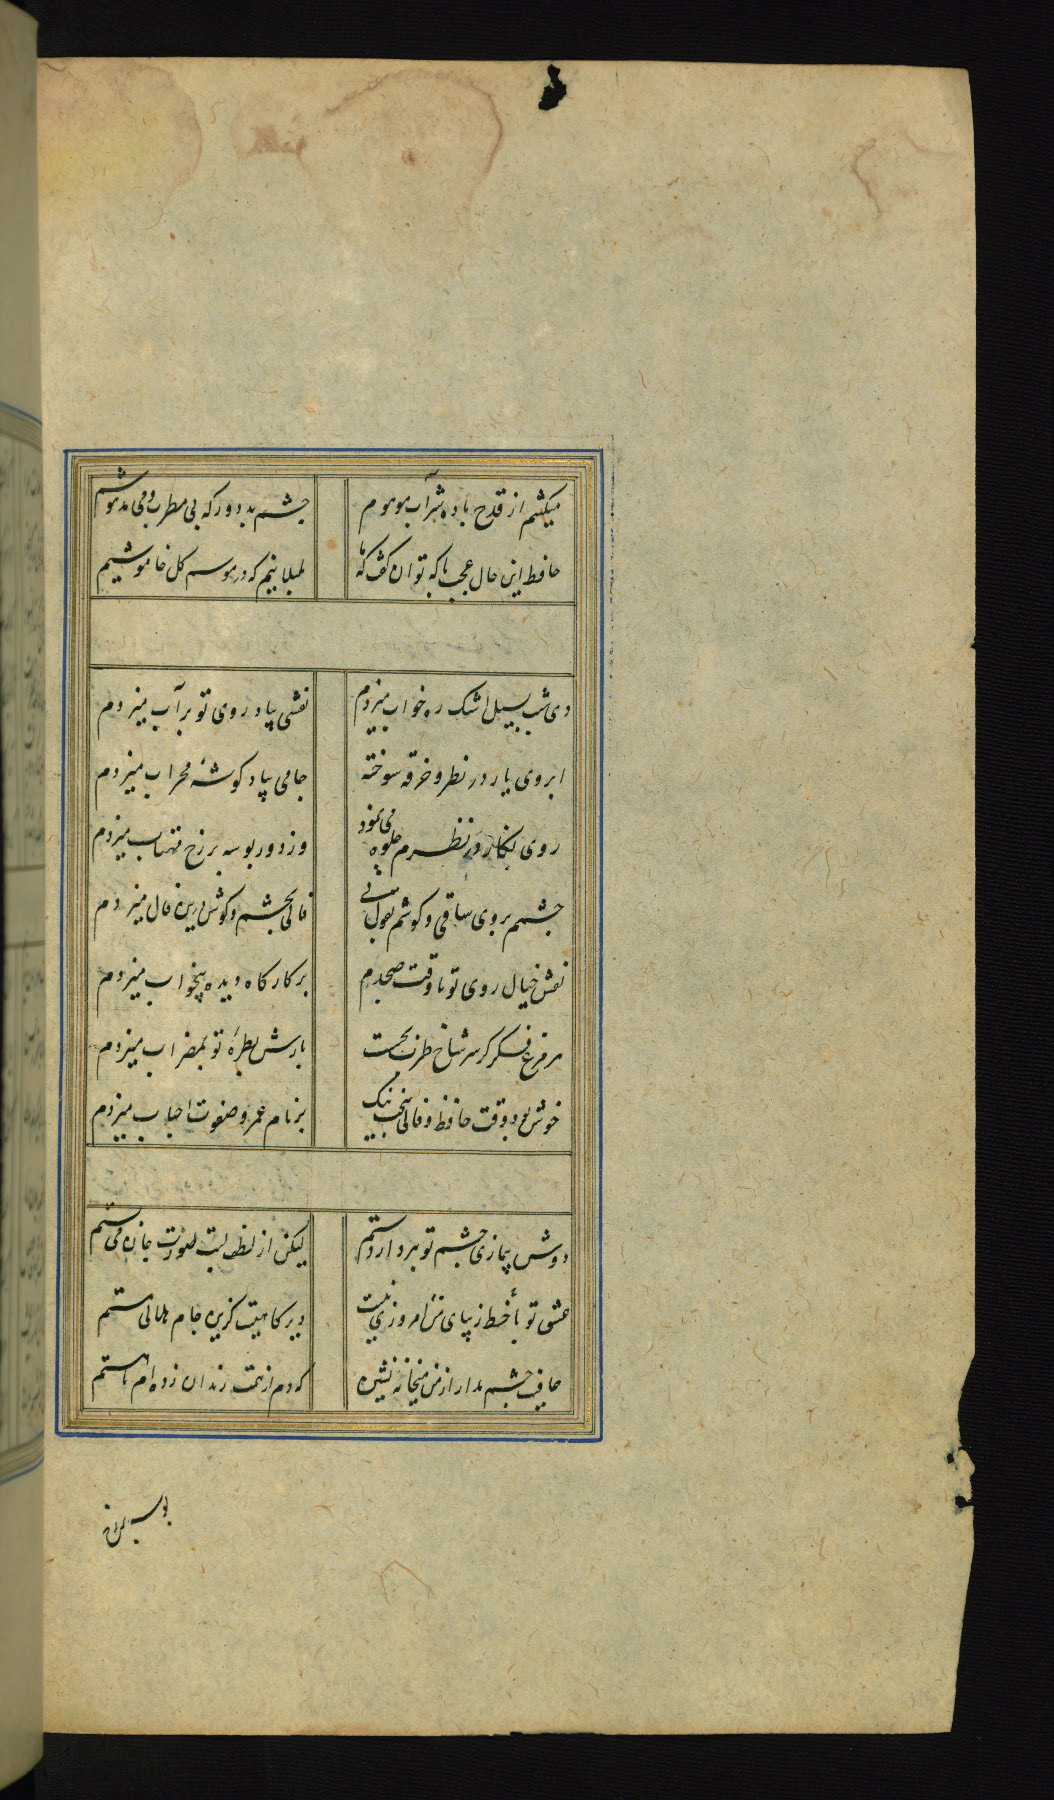 میکشم از قدح باده شراب موهوم چشم بد دور که بی مطرب و می مدهوشیم
حافظ این حال عجب با که توان گفت که ما بلبلانیم که در موسم کل خاموشیم
دی شب بسیل اشک ره خواب میزدم نقشی بیاد روی تو بر آب میزدم
ابروی یار در نظر و خرقه سوخته جامی بیاد کوشهٔ محراب میزدم
روی نکار در نظرم جلوه می نمود وز دور بوسه بر رخ مهتاب میزدم
چشمم بروی ساقی و کوشم بقول نی فالی بچشم و کوش درین فال میزدم
نقش خیال روی تو تا وقت صبحدم بر کارکاه دیده بیخواب میزدم
هر مرغ فکر کز سر شاخ طرب بجست بازش بطرهٔ تو بمضراب میزدم
خوش بود وقت حافظ و فالی نیک بر نام عمر و صفوت احباب میزدم
دوش بیماری چشم تو ببرد از دستم لیکن از لطف لبت صورت جان می بستم
عشق تو با خط زیبای من امروزی نیست دیر کاهیست کزین جام هلالی مستم
عافیت چشم مدار از من میخانه نشین که دم از همت رندان زده‌ام تا هستم
بوسه بر درج